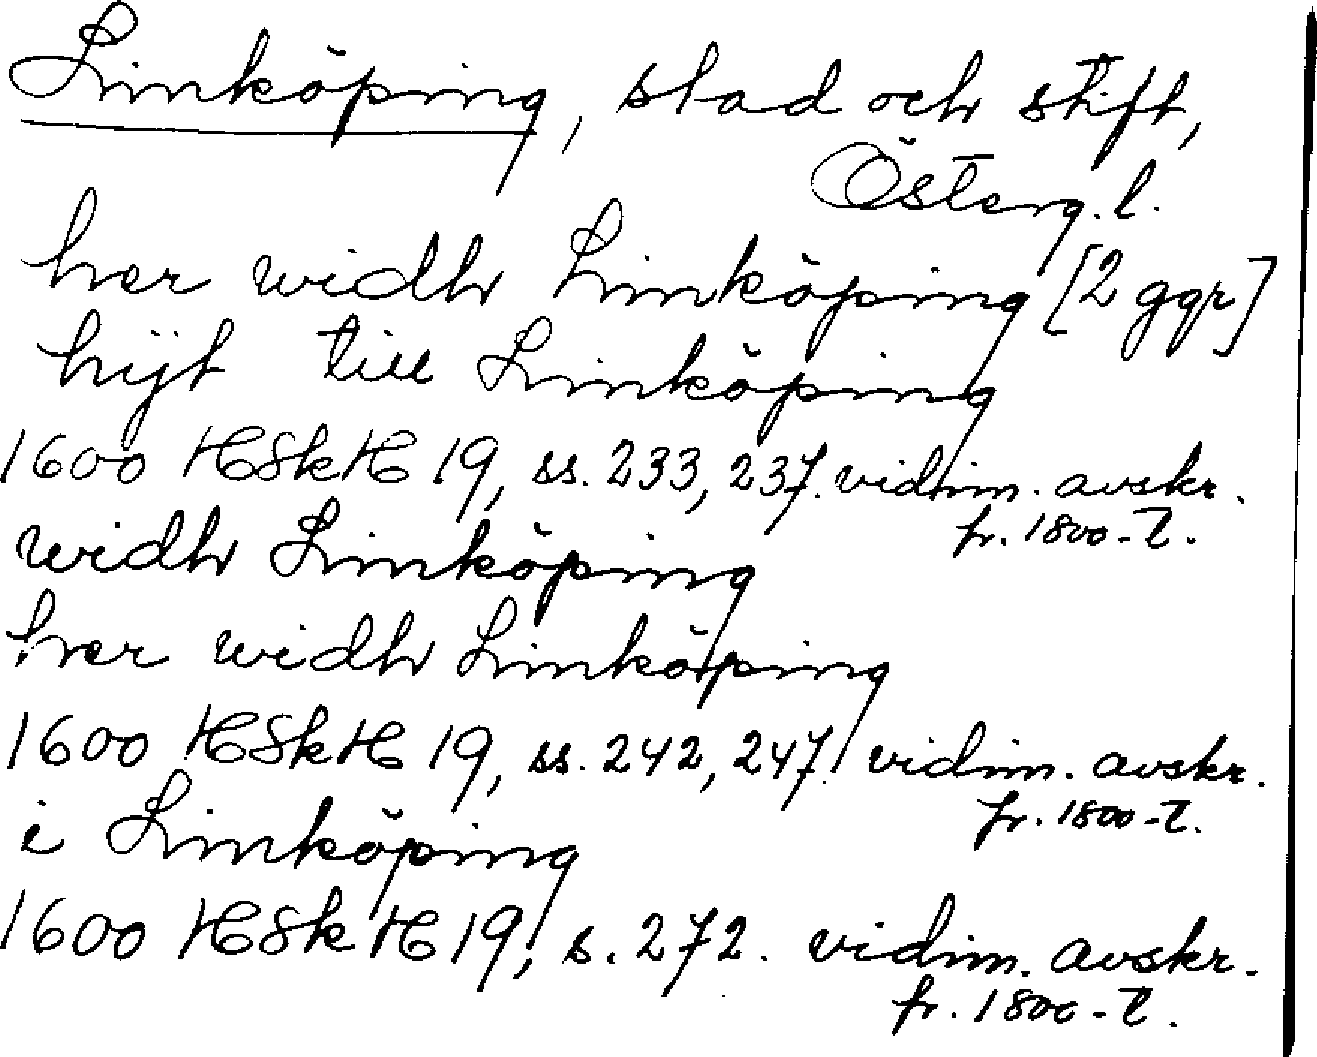 Linköping, stad och stift,
Österg. l.
her widh Linköping [2 ggr]
hijt till Linköping
1600 HSkH 19, ss. 233, 237. vidim. avskr.
fr. 1800-t.
widh Linköping
her widh Linköping
1600 HSkH 19, ss. 242, 247. vidim. avskr.
fr. 1800-t.
i Linköping
1600 HSkH 19, s. 272. vidim. avskr.
fr. 1800-t.